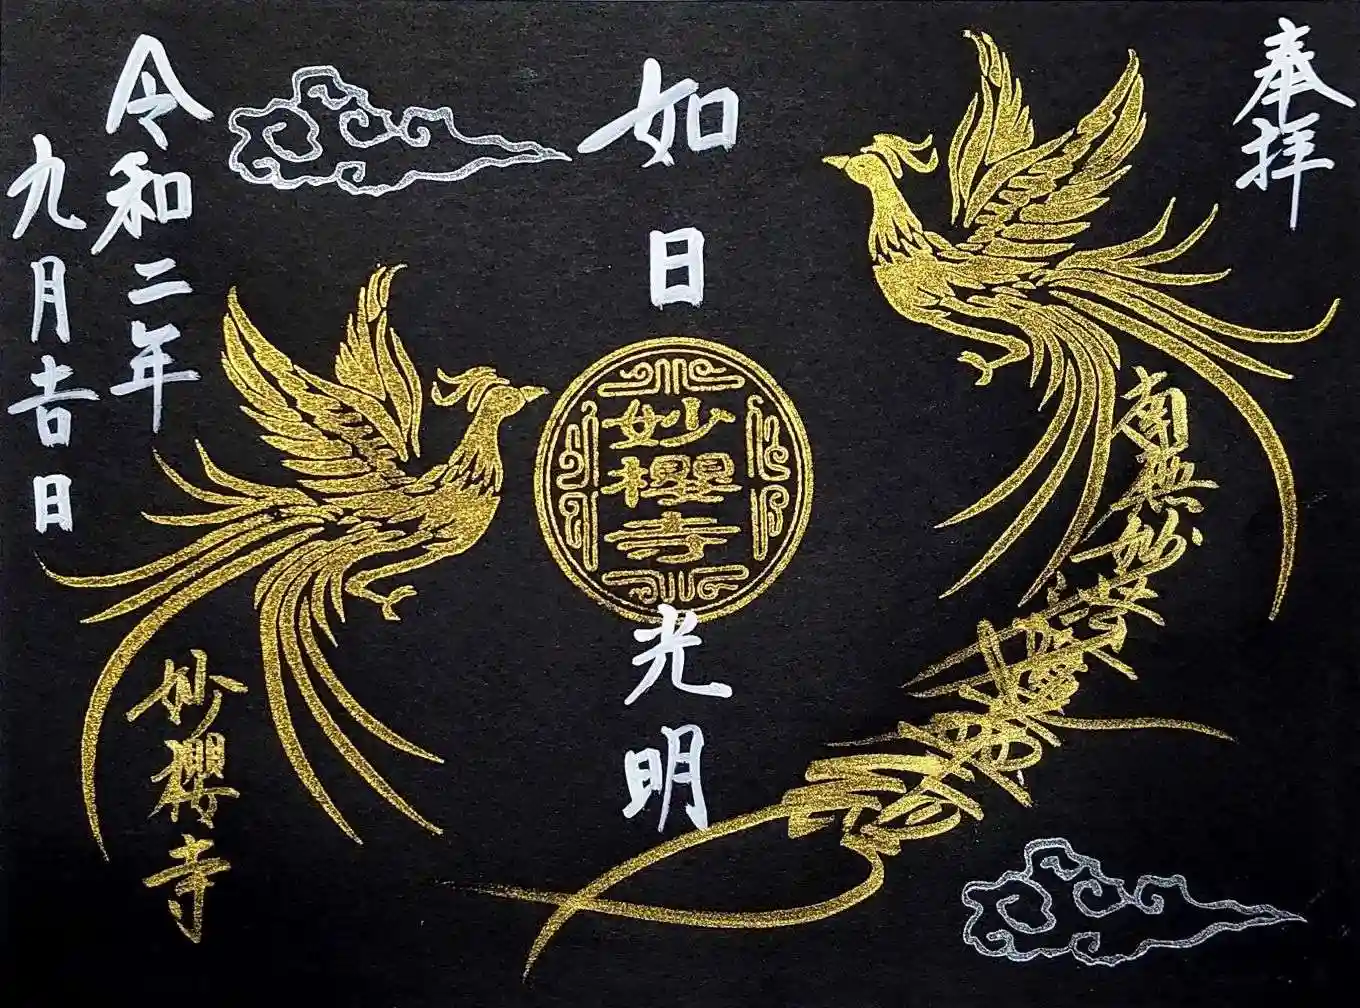 奉拝
南無妙法蓮華経
如日
光明
妙櫻寺
令和二年
九月吉日
妙櫻寺